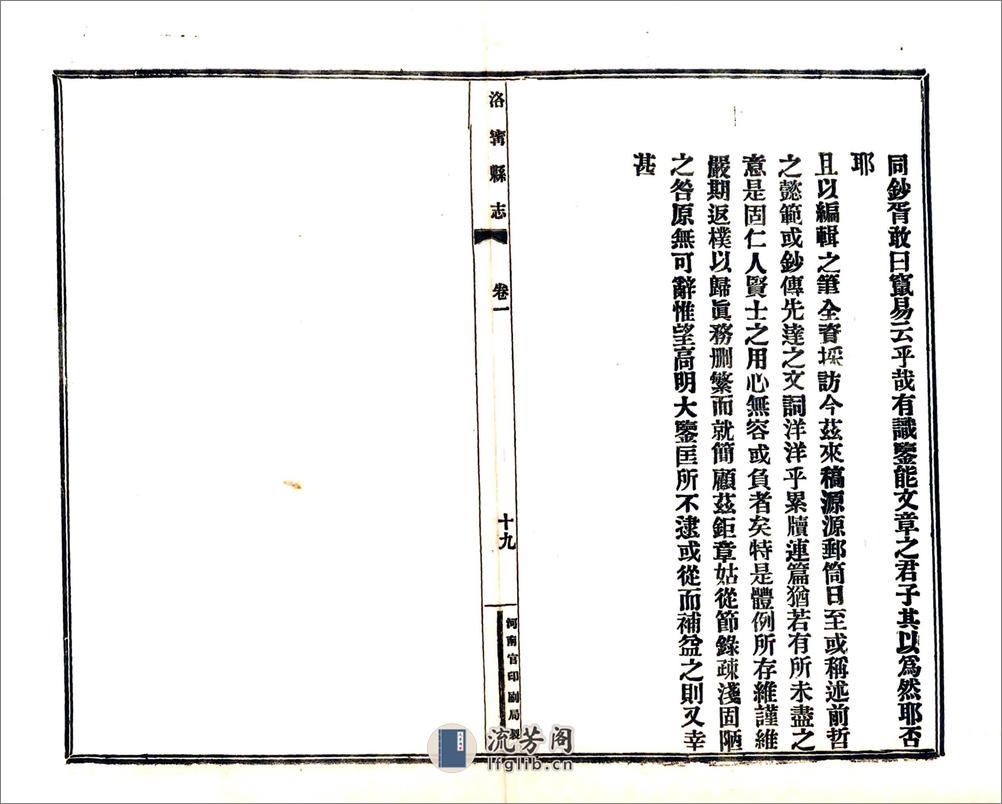 同鈔胥敢曰竄易云乎哉有識鑒能文章之君子其以爲然耶否
耶
且以編輯之筆全資採訪今茲來稿源源郵筒日至或稱述前哲
之懿範或鈔傳先達之文詞洋洋乎累牘連篇猶若有所未盡之
意是固仁人賢士之用心無容或負者矣特是體例所存維謹維
嚴期返樸以歸眞務刪繁而就簡顧茲鉅章姑從節錄疎淺固陋
之咎原無可辭惟望高明大鑒匡所不逮或從而補益之則又幸
甚
洛寗縣志
卷一
十九
河南官印刷局製
流芳阁
lfglib.cn